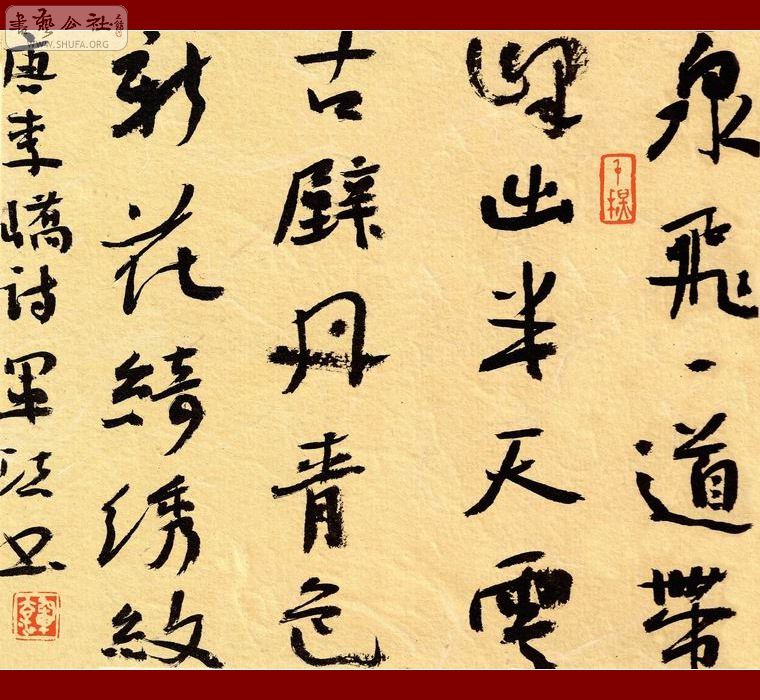 泉飛一道帶
峰出半天雲
古壁丹青色
新花綺绣紋
唐李嶠詩軍书
書藝公社
WWW.SHUFA.ORG